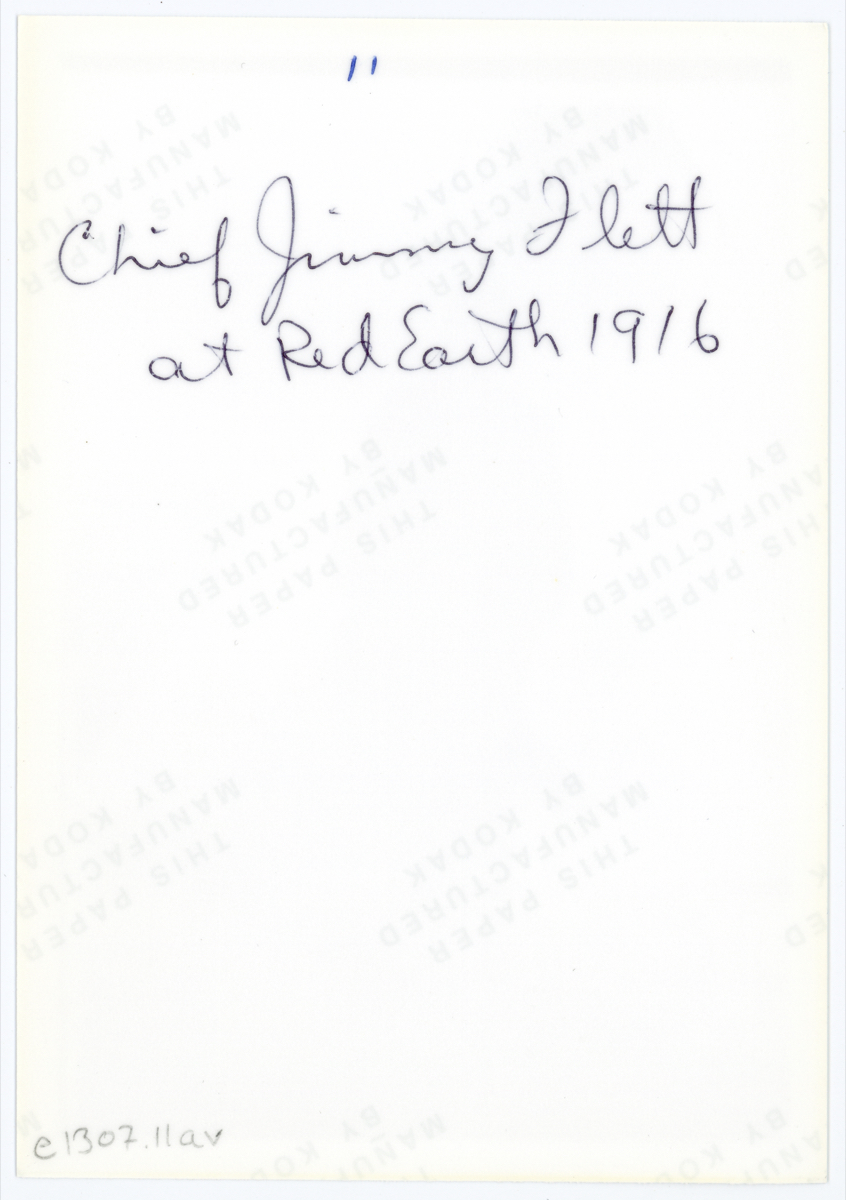 11
Chief Jimmy Flett
at Red Earth 1916
BY KODAK
MANUFACTURED
THIS PAPER
e1307.11av